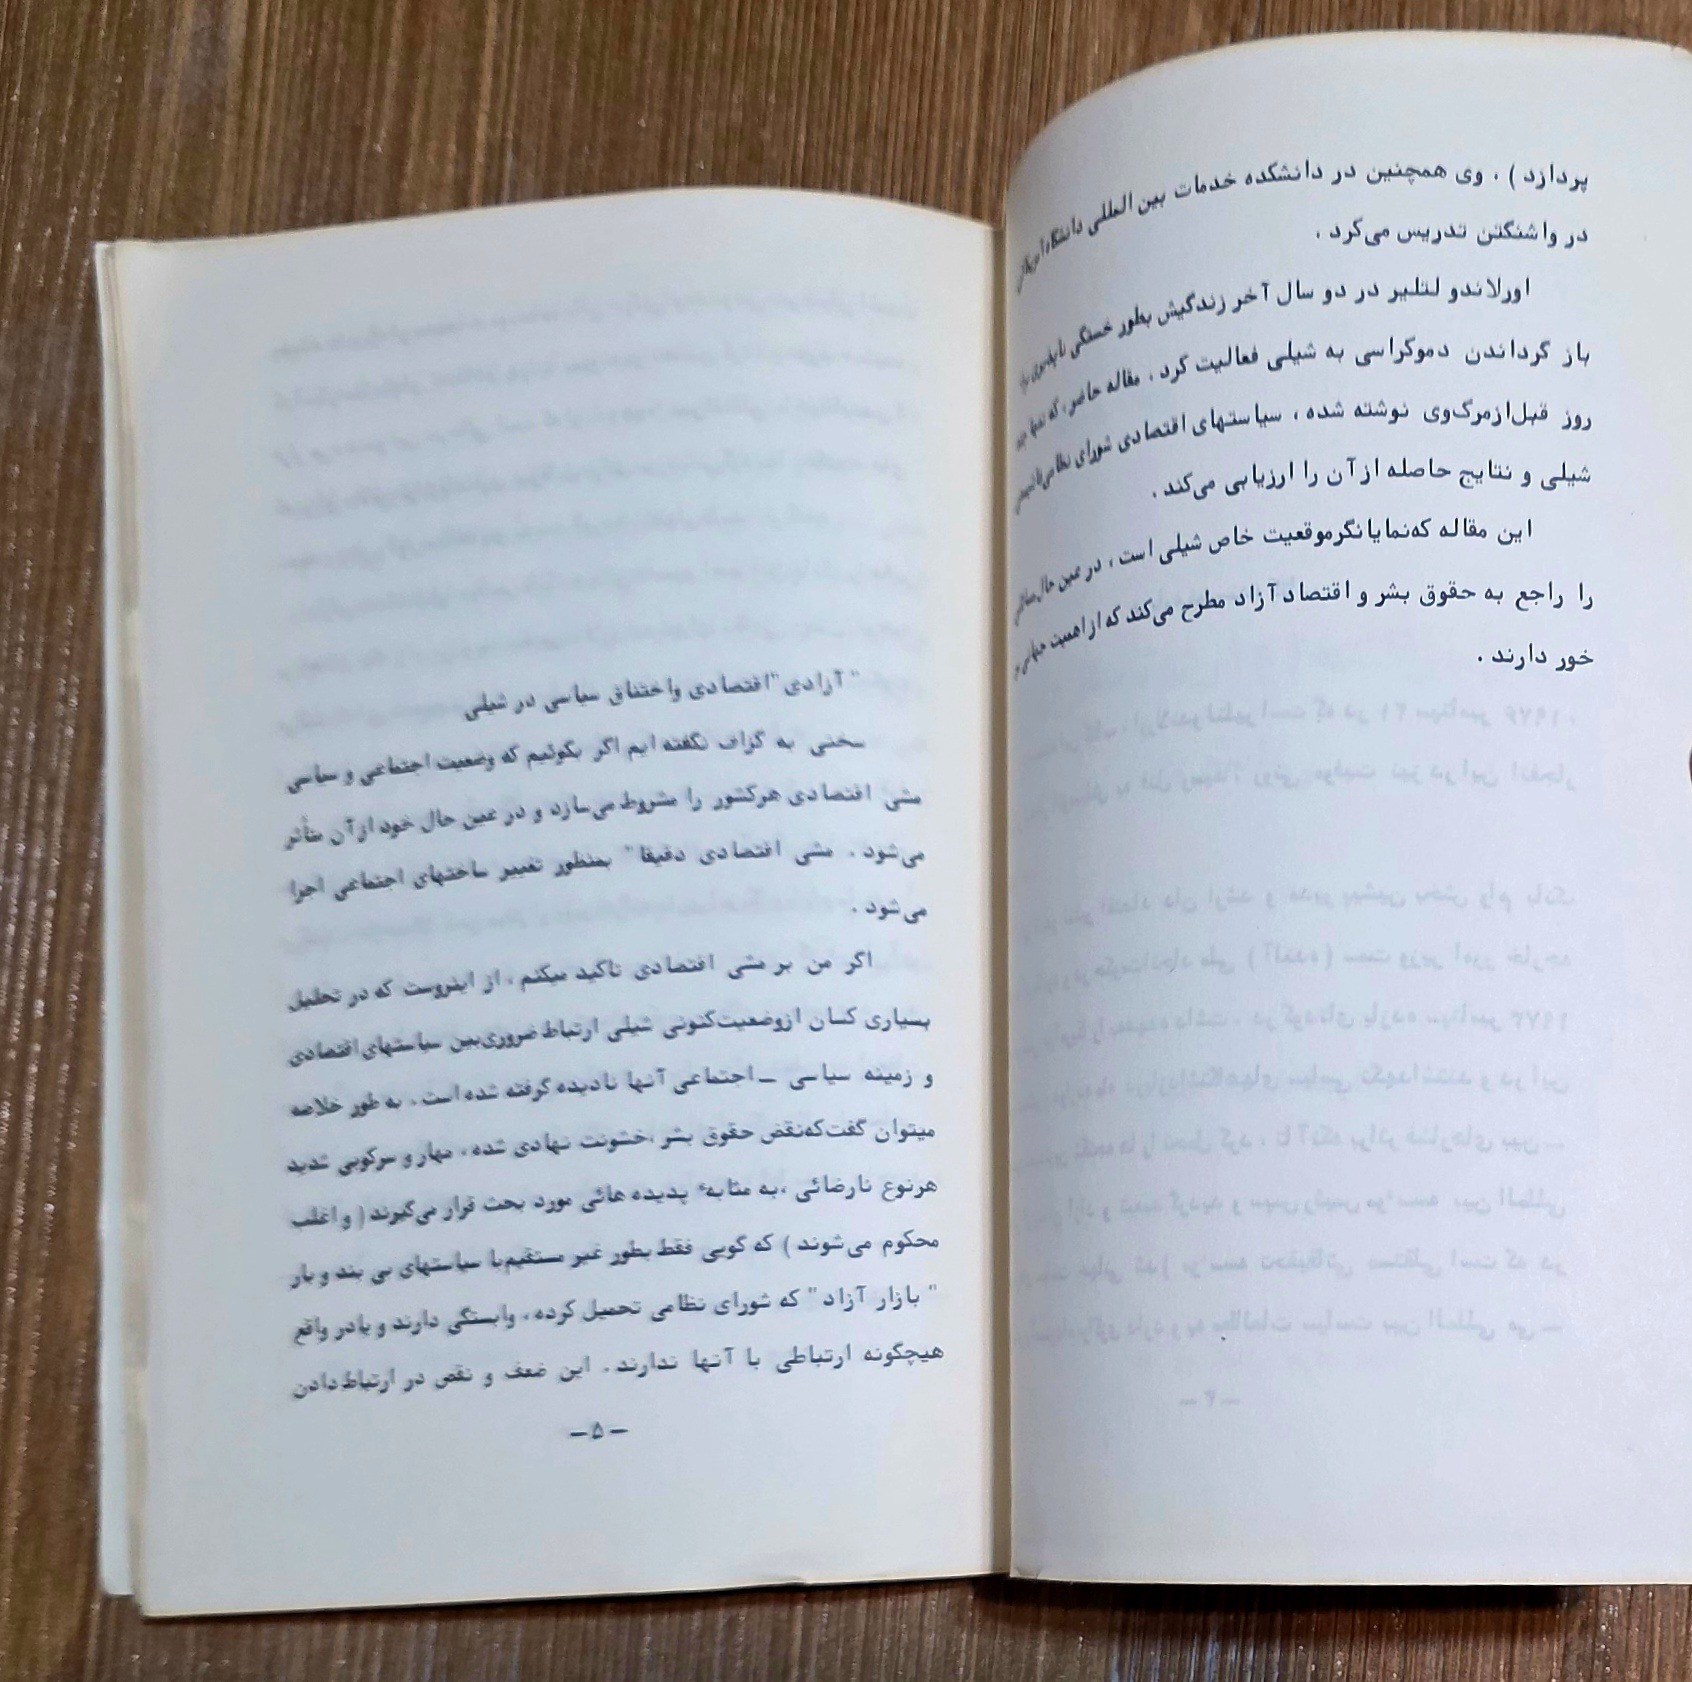 پردازد ) . وی همچنین در دانشکده خدمات بین المللی دانشگاه آمریکائی
در واشنگتن تدریس می‌کرد .
اورلاندو لتلیر در دو سال آخر زندگیش بطور خستگی ناپذیری برای
باز گرداندن دموکراسی به شیلی فعالیت کرد . مقاله حاضر، که تنها چند
روز قبل‌ازمرگ‌وی نوشته شده ، سیاستهای اقتصادی شورای نظامی‌فاشیستی
شیلی و نتایج حاصله ازآن را ارزیابی می‌کند .
این مقاله که‌نمایانگرموقعیت خاص شیلی است ، در عین حال‌مسائلی
را راجع به حقوق بشر و اقتصاد آزاد مطرح می‌کند که از اهمیت جهانی بر
خور دارند .
" آزادی "اقتصادی واختناق سیاسی در شیلی
سخنی به گزاف نگفته ایم اگر بگوئیم که وضعیت اجتماعی و سیاسی
مشی اقتصادی هرکشور را مشروط می‌سازد و در عین حال خود ازآن متأثر
می‌شود . مشی اقتصادی دقیقا" بمنظور تغییر ساختهای اجتماعی اجرا
می‌شود .
اگر من بر مشی اقتصادی تاکید میکنم ، از اینروست که در تحلیل
بسیاری کسان ازوضعیت‌کنونی شیلی ارتباط ضروری‌بین سیاستهای‌اقتصادی
و زمینه سیاسی ــ اجتماعی آنها نادیده گرفته شده است . به طور خلاصه
میتوان گفت‌که‌نقض حقوق بشر ،خشونت نهادی شده ، مهار و سرکوبی شدید
هرنوع نارضائی ،به مثابهٔ پدیده هائی مورد بحث قرار می‌گیرند ( و اغلب
محکوم می‌شوند ) که گویی فقط بطور غیر مستقیم‌با سیاستهای بی بند و بار
" بازار آزاد " که شورای نظامی تحمیل کرده ، وابستگی دارند و یادر واقع
هیچگونه ارتباطی با آنها ندارند . این ضعف و نقص در ارتباط‌دادن
ــ ۵ ــ